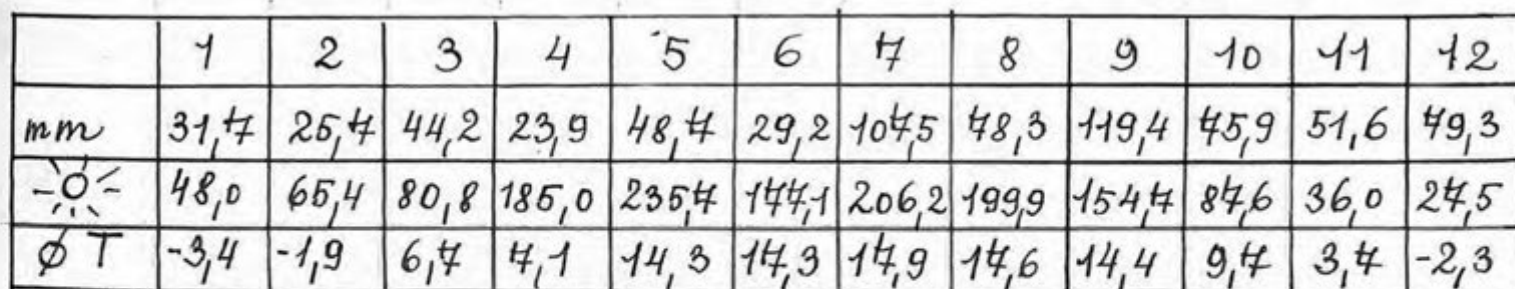 1 2 3 4 5 6 7 8 9 10 11 12
mm 31,7 25,7 44,2 23,9 48,7 29,2 107,5 78,3 119,4 75,9 51,6 79,3
48,0 65,4 80,8 185,0 235,7 177,1 206,2 199,9 154,7 87,6 36,0 27,5
Ø T -3,4 -1,9 6,7 7,1 14,3 17,3 17,9 17,6 14,4 9,7 3,7 -2,3